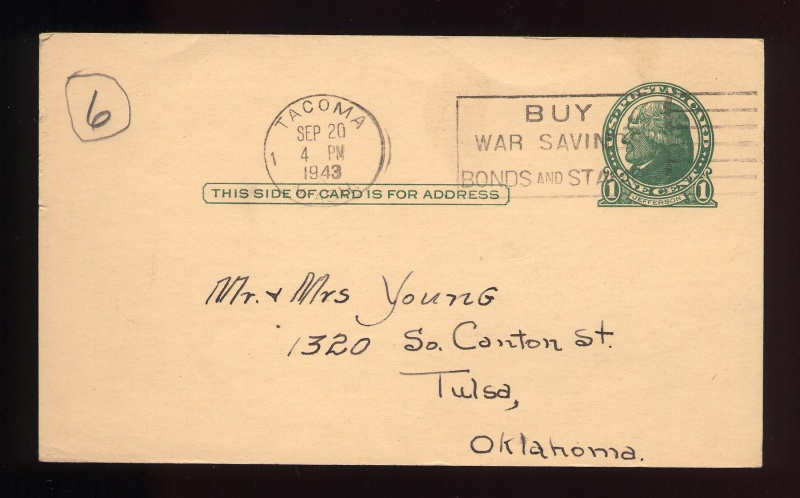 6
TACOMA
SEP 20
4 PM
1943
1
BUY
WAR SAVIN
BONDS AND STA
U.S. POSTAL CARD
ONE CENT
1 JEFFERSON 1
THIS SIDE OF CARD IS FOR ADDRESS
Mr. & Mrs Young
1320 So. Canton St.
Tulsa,
Oklahoma.